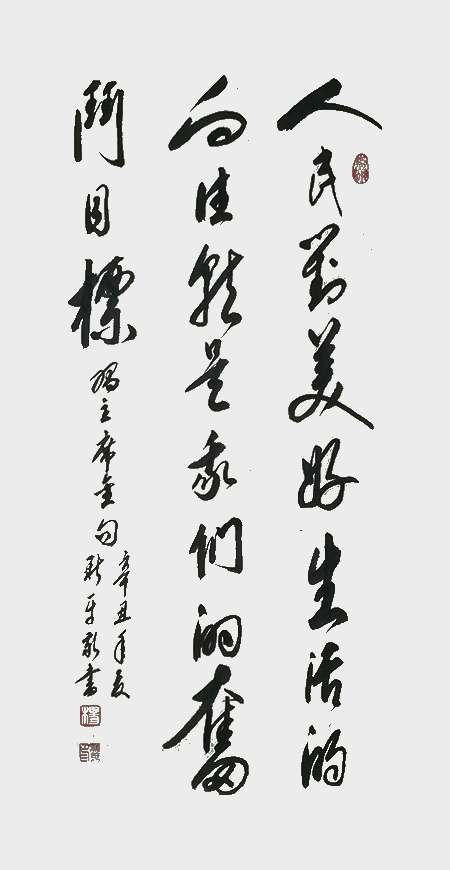 人民對美好生活的
向往就是我们的奮
鬥目標
習主席金句
辛丑年夏
書